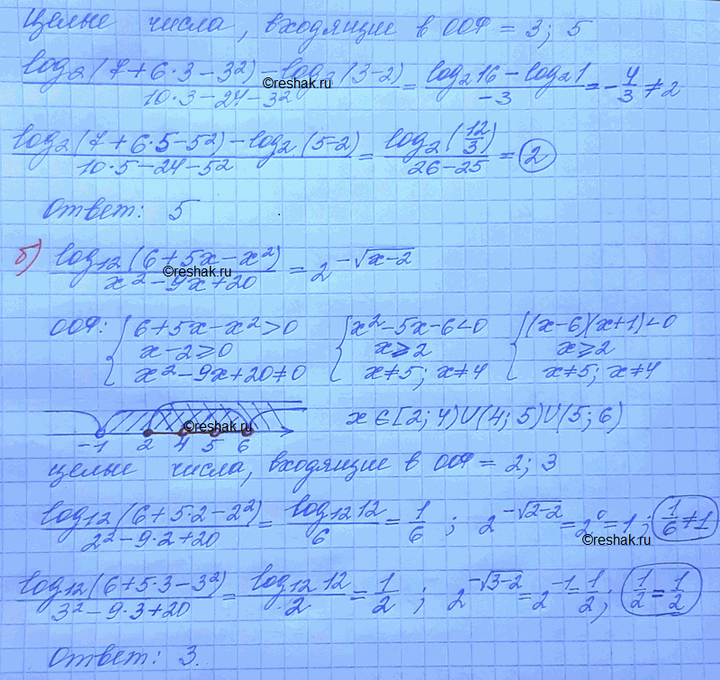 Целые числа, входящие в ООФ = 3; 5
(log₂(7+6·3−3²)−log₂(3−2))/(10·3−24−3²) = (log₂16−log₂1)/(−3) = −4/3 ≠ 2
©reshak.ru
(log₂(7+6·5−5²)−log₂(5−2))/(10·5−24−5²) = (log₂(12/3))/(26−25) = 2
Ответ: 5
б) (log₁₂(6+5x−x²))/(x²−9x+20) = 2^(−√(x−2))
©reshak.ru
ООФ: { 6+5x−x²>0 { x²−5x−6<0 { (x−6)(x+1)<0
x−2⩾0 x⩾2 x⩾2
x²−9x+20≠0 x≠5; x≠4 x≠5; x≠4
©reshak.ru
−1 2 4 5 6 x∈[2;4)∪(4;5)∪(5;6)
целые числа, входящие в ООФ = 2; 3
(log₁₂(6+5·2−2²))/(2²−9·2+20) = (log₁₂12)/6 = 1/6 ; 2^(−√(2−2)) = 2⁰ = 1; 1/6 ≠ 1
©reshak.ru
(log₁₂(6+5·3−3²))/(3²−9·3+20) = (log₁₂12)/2 = 1/2 ; 2^(−√(3−2)) = 2⁻¹ = 1/2; 1/2 = 1/2
Ответ: 3.